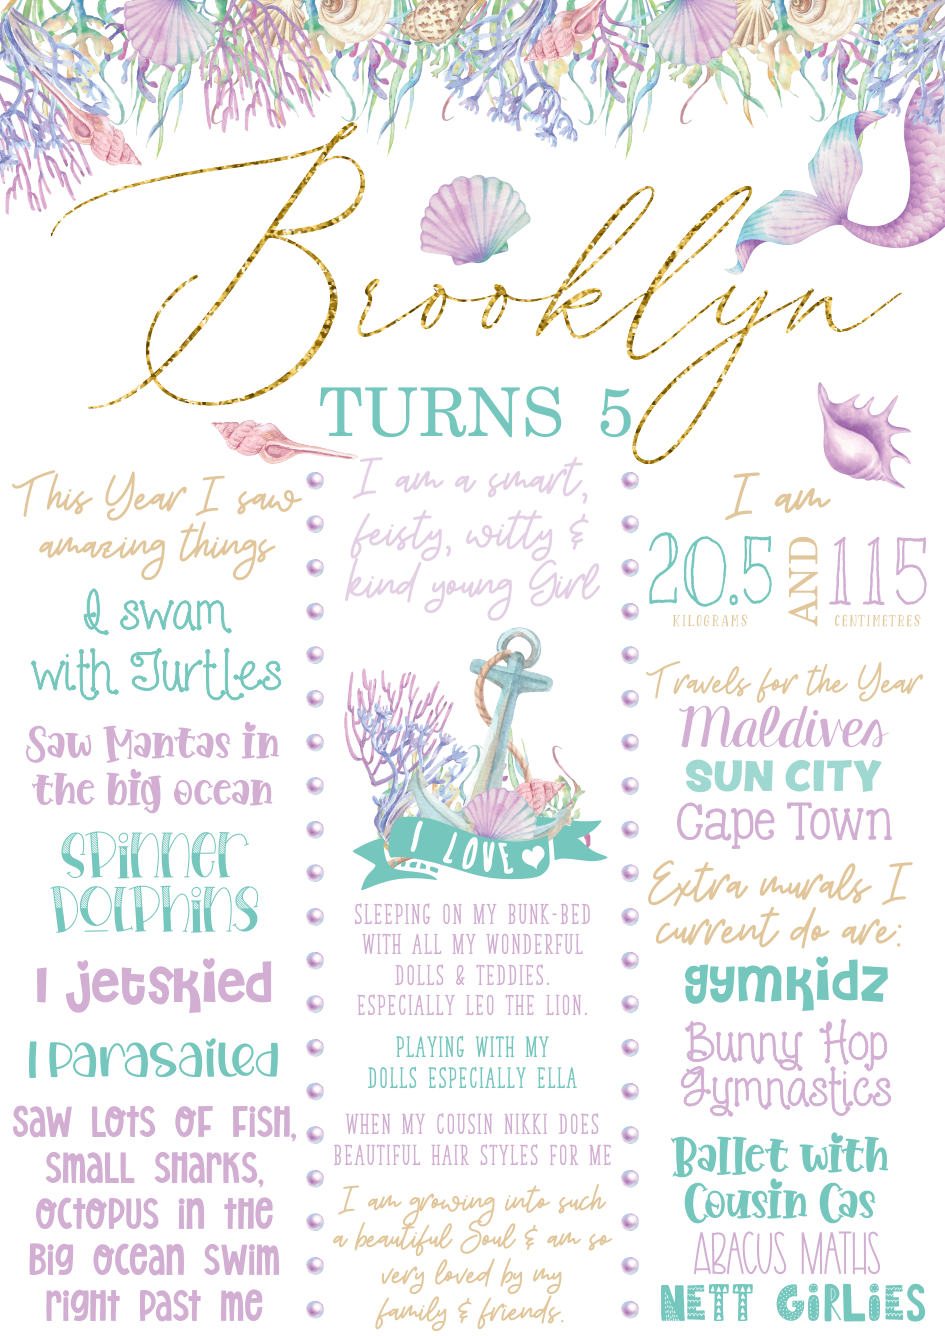 Brooklyn
TURNS 5
This Year I saw
amazing things
I swam
with Turtles
Saw Mantas in
the big ocean
Spinner
Dolphins
I jetskied
I Parasailed
Saw Lots of Fish,
Small Sharks,
Octopus in the
Big Ocean Swim
right past me
I am a smart,
feisty, witty &
kind young Girl
I LOVE
SLEEPING ON MY BUNK-BED
WITH ALL MY WONDERFUL
DOLLS & TEDDIES.
ESPECIALLY LEO THE LION.
PLAYING WITH MY
DOLLS ESPECIALLY ELLA
WHEN MY COUSIN NIKKI DOES
BEAUTIFUL HAIR STYLES FOR ME
I am growing into such
a beautiful Soul & am so
very loved by my
family & friends.
I am
20.5 AND 115
KILOGRAMS CENTIMETRES
Travels for the Year
Maldives
SUN CITY
Cape Town
Extra murals I
current do are:
gymkidz
Bunny Hop
Gymnastics
Ballet with
Cousin Cas
ABACUS MATHS
NETT GIRLIES